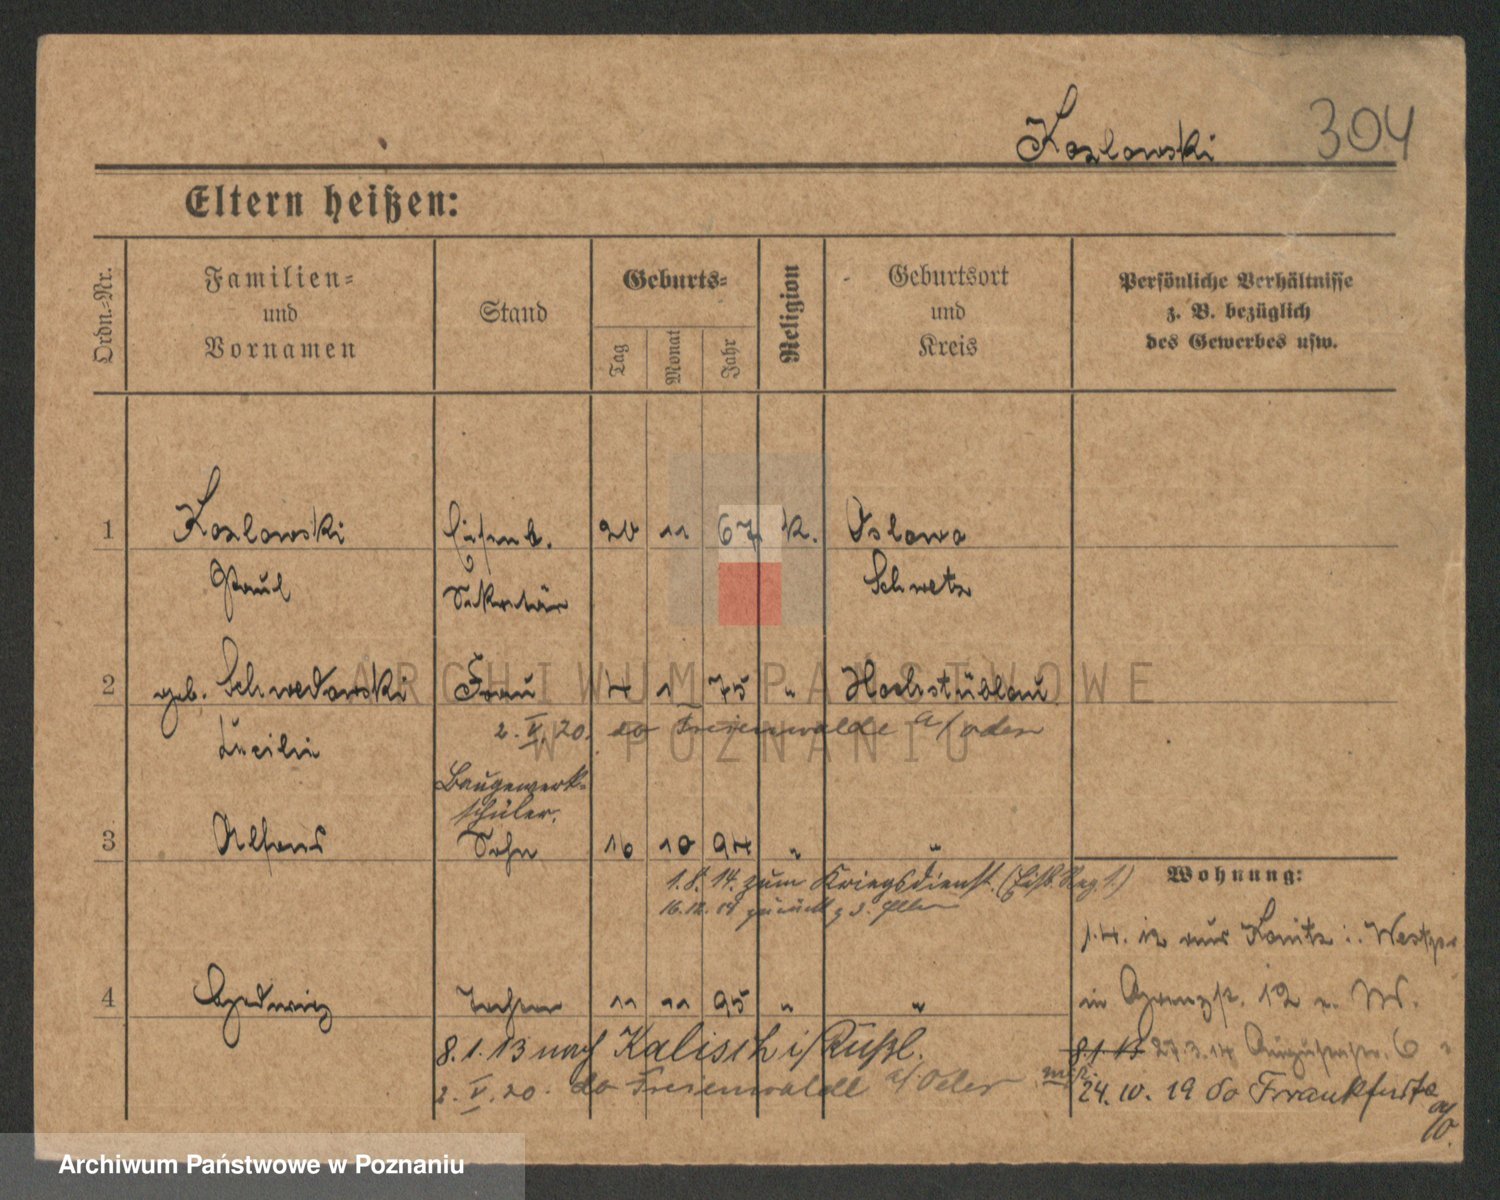 Kozlowski 304
Eltern heißen:
Ordn.=Nr.
Familien=
und
Vornamen
Stand
Geburts=
Tag
Monat
Jahr
Religion
Geburtsort
und
Kreis
Persönliche Verhältnisse
z. B. bezüglich
des Gewerbes usw.
1 Kozlowski Eisenb. 20 11 67 k. Oslowo
Paul Sekretär Schwetz
2 geb. Schwedowski Frau 4 1 75 " Hochstüblau
2. V. 20. do Freienwalde a/oder
Lucilie
Baugewerk-
schüler.
3 Alfons Sohn 16 10 94 " "
1.8.14. zum Kriegsdienst.
Wohnung:
1.4. 12 aus Konitz i. Westpr
4 Hedwig Tochter 11 11 95 " "
in 12
8.1.13 nach Kalisch i/Rußl.
8.1.13 27.3.14 Augustastr. 6
2. V. 20. do Freienwalde a/Oder
24. 10. 19 do Frankfurt a/O.
ARCHIWUM PAŃSTWOWE
W POZNANIU
Archiwum Państwowe w Poznaniu